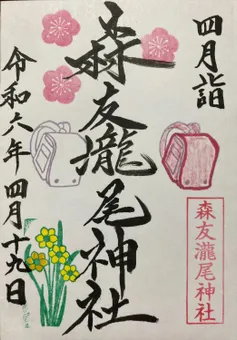 四月詣
森友瀧尾神社
森友瀧尾神社
令和六年 四月十九日